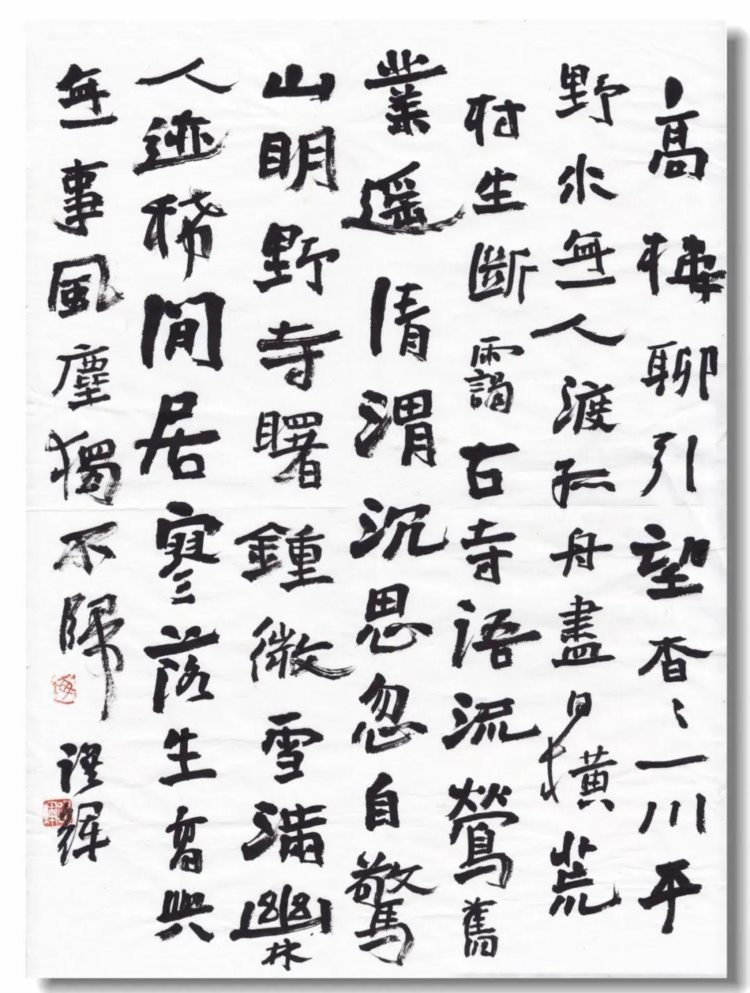 高樓聊引望杳〻一川平
野水無人渡孤舟盡日橫荒
村生斷靄古寺語流鶯舊
業遥清渭沉思忽自驚
山明野寺曙鍾微雪滿幽林
人迹稀閒居寥落生高興
無事風塵獨不歸